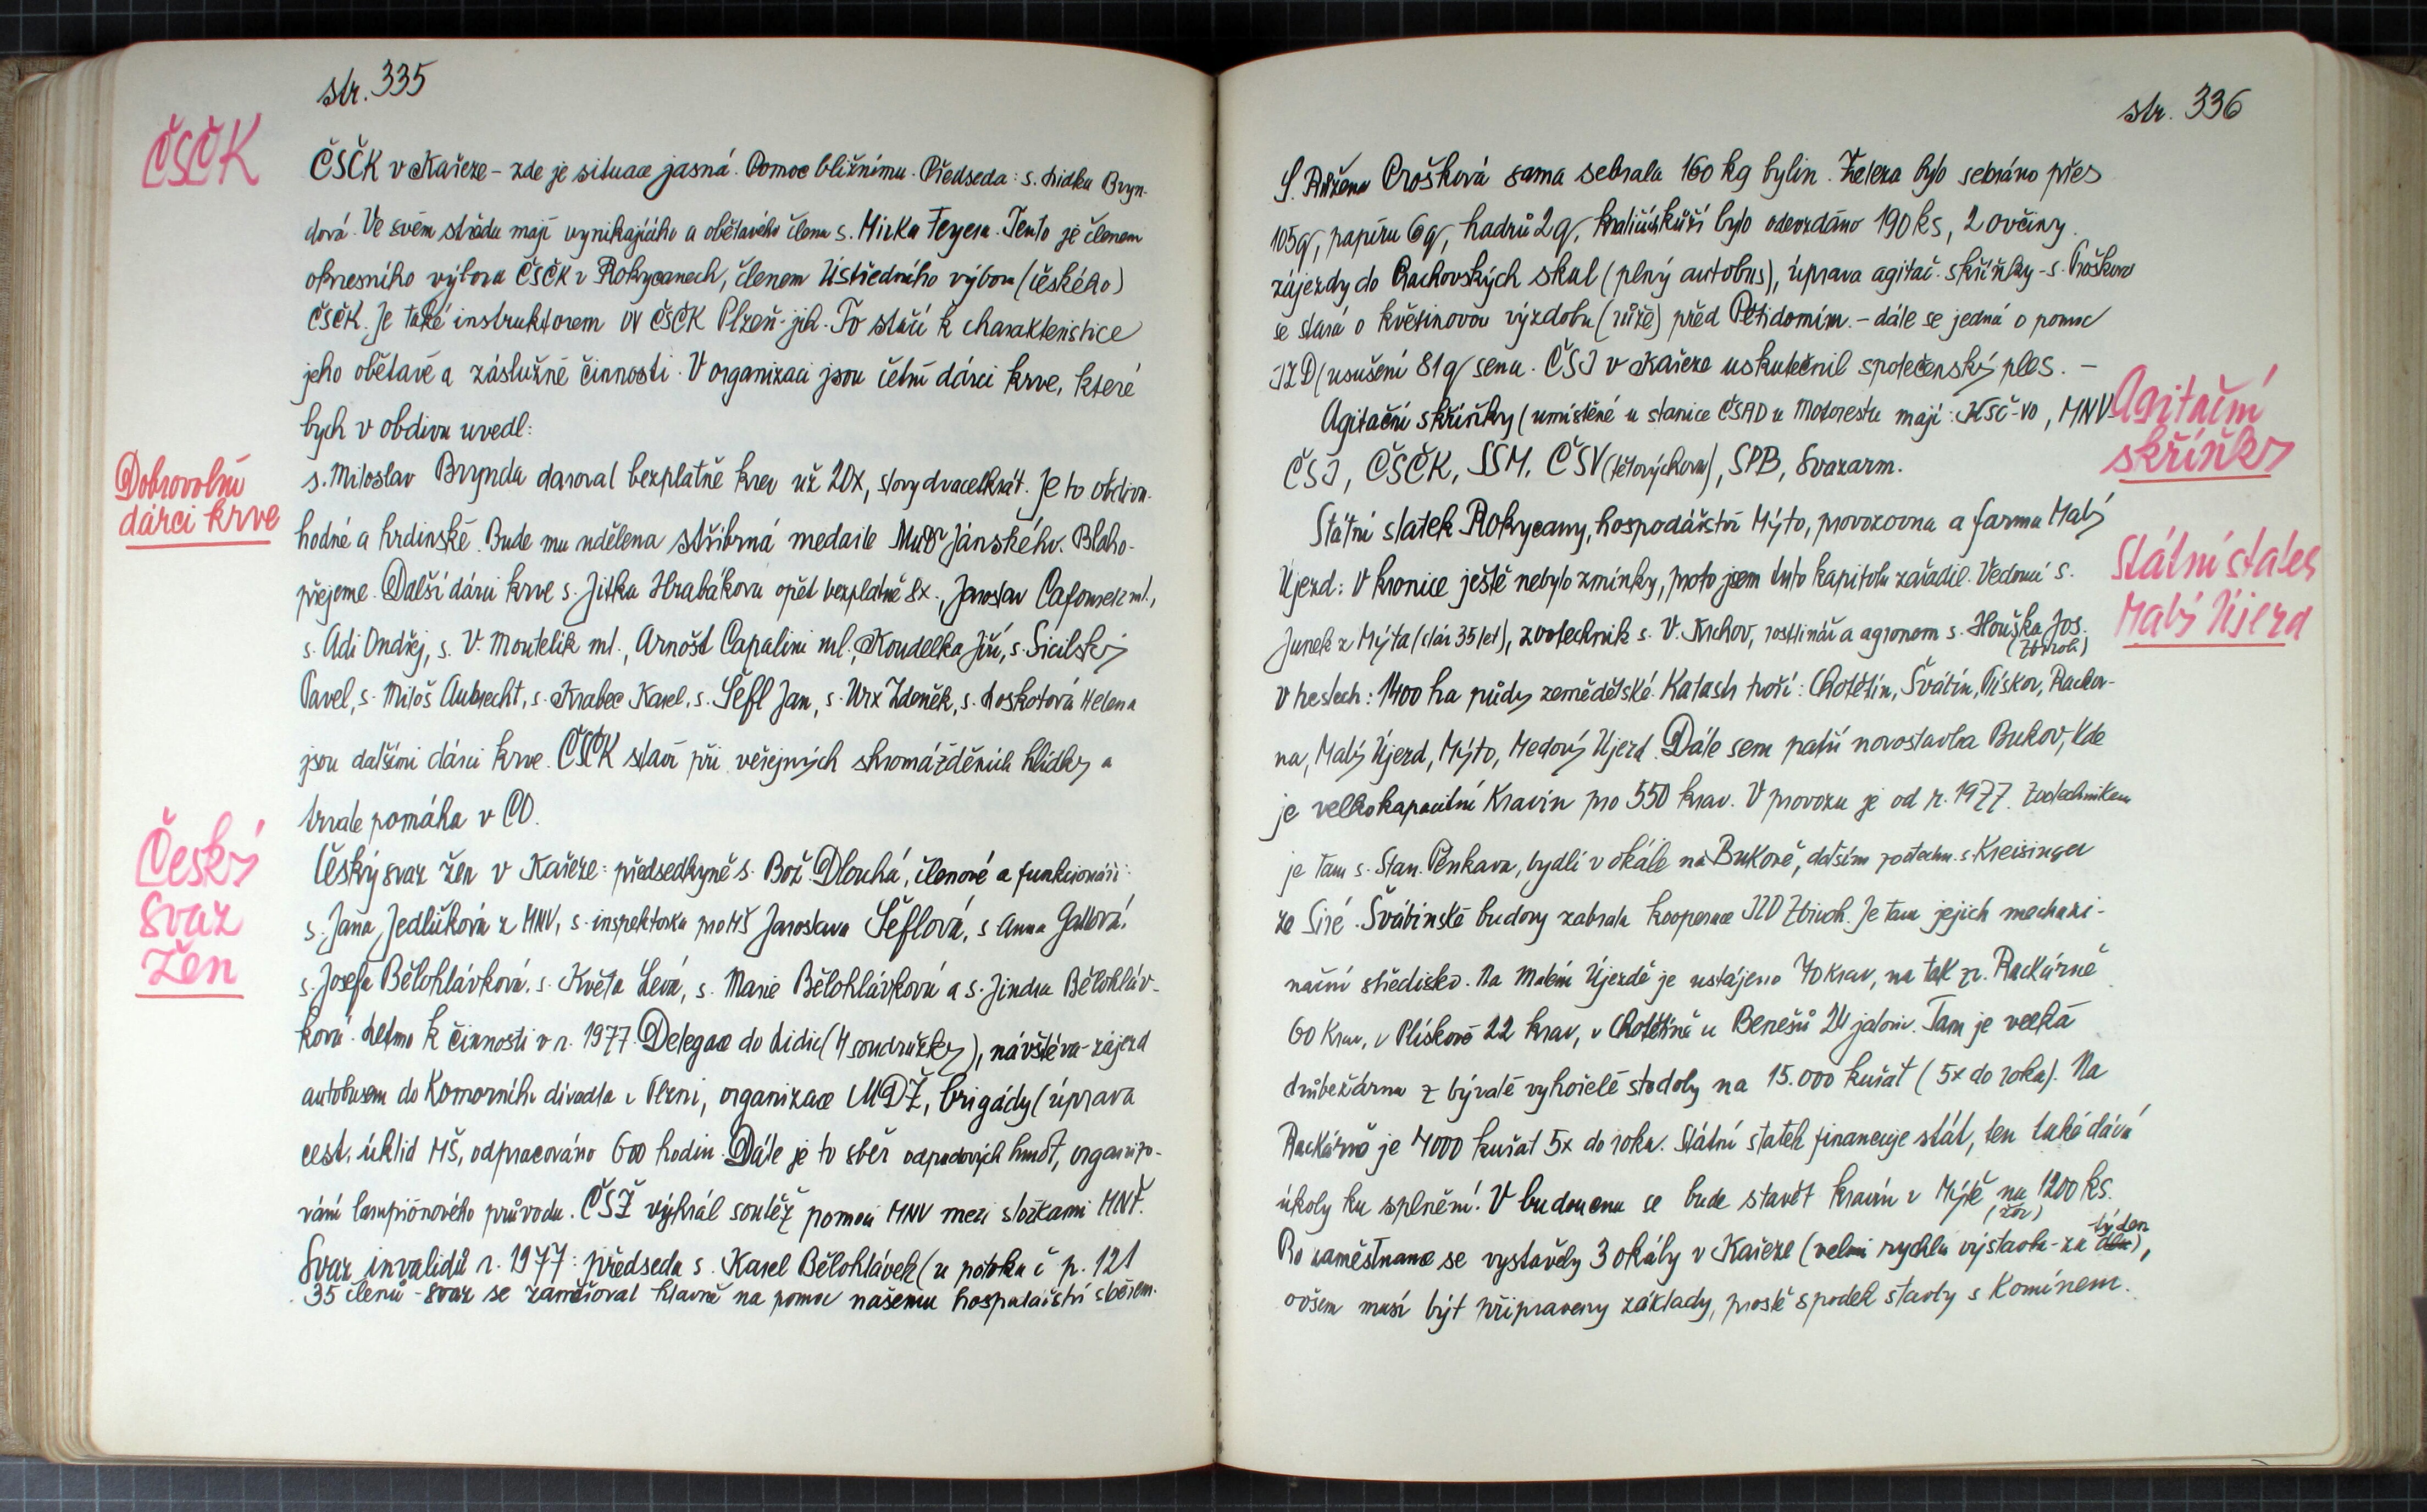 str. 335
ČSČK
ČSČK v Kařeze - zde je situace jasná. Pomoc bližnímu. Předseda: s. Lidka Bryn-
dová. Ve svém středu mají vynikajícího a obětavého člena s. Mirka Feyera. Tento je členem
okresního výboru ČSČK v Rokycanech, členem Ústředního výboru (českého)
ČSČK. Je také instruktorem OV ČSČK Plzeň-jih. To stačí k charakteristice
jeho obětavé a záslužné činnosti. V organizaci jsou četní dárci krve, které
bych v obdivu uvedl:
Dobrovolní
dárci krve
s. Miloslav Brynda daroval bezplatně krev už 20x, slovy dvacetkrát. Je to obdivu-
hodné a hrdinské. Bude mu udělena stříbrná medaile MuDr Jánského. Blaho-
přejeme. Další dárci krve s. Jitka Hrabáková opět bezplatně 8x., Jaroslav Cafourek ml.,
s. Adi Ondřej, s. V. Moutelík ml., Arnošt Capalini ml., Koudelka Jiří, s. Sicilský
Pavel, s. Miloš Aubrecht, s. Krabec Karel, s. Šéfl Jan, s. Urx Zdeněk, s. Loskotová Helena
jsou dalšími dárci krve. ČSČK staví při veřejných shromážděních hlídky a
trvale pomáhá v CO.
Český
svaz
žen
Český svaz žen v Kařeze: předsedkyně s. Bož. Dlouhá, členové a funkcionáři:
s. Jana Jedličková z MNV, s. inspektorka pro MŠ Jaroslava Šéflová, s Anna Gallová,
s. Josefa Bělohlávková, s. Květa Levá, s. Marie Bělohlávková a s. Jindra Bělohláv-
ková. Letmo k činnosti v r. 1977. Delegace do Lidic (4 soudružky), návštěva-zájezd
autobusem do Komorního divadla v Plzni, organizace MDŽ, brigády (úprava
cest, úklid MŠ, odpracováno 600 hodin. Dále je to sběr odpadových hmot, organizo-
vání lampiónového průvodu. ČSŽ vyhrál soutěž pomoci MNV mezi složkami MNF.
Svaz invalidů r. 1977: předseda s. Karel Bělohlávek (u potoka č p. 121
35 členů - svaz se zaměřoval hlavně na pomoc našemu hospodářství sběrem.
str. 336
S. Růžena Crošková sama sebrala 160 kg bylin. Železa bylo sebráno přes
105q, papíru 6q, hadrů 2q, králičích kůží bylo odevzdáno 190 ks, 2 ovčiny.
zájezdy do Prachovských skal (plný autobus), úprava agitač. skříňky - s. Prošková
se stará o květinovou výzdobu (růže) před Pětidomím. - dále se jedná o pomoc
JZD (usušení 81q sena. ČSI v Kařeze uskutečnil společenský ples. -
Agitační
skříňky
Agitační skříňky (umístěné u stanice ČSAD u Motorestu mají: KSČ-VO, MNV
ČSI, ČSČK, SSM, ČSV (tělovýchova), SPB, Svazarm.
Státní statek
Malý Újezd
Státní statek Rokycany, hospodářství Mýto, provozovna a farma Malý
Újezd: V kronice ještě nebylo zmínky, proto jsem tuto kapitolu zařadil. Vedoucí s.
Junek z Mýta (stár 35 let), zootechnik s. V. Krchov, rostlinář a agronom s. Houška Jos.
(Zbiroh)
V heslech: 1400 ha půdy zemědělské. Katastr tvoří: Chotětín, Švábín, Plískov, Rackov-
na, Malý Újezd, Mýto, Medový Újezd. Dále sem patří novostavba Bukov, kde
je velkokapacitní kravín pro 550 krav. V provozu je od r. 1977. Zootechnikem
je tam s. Stan. Pěnkava, bydlí v okále na Bukově, dalším zootechn. s Kreisinger
ze Siré. Švábínské budovy zabrala kooperace JZD Zbiroh. Je tam jejich mechani-
nační středisko. Na Malém Újezdě je ustájeno 70 krav, na tak zv. Rackárně
60 krav, v Plískově 22 krav, v Chotětíně u Benešů 24 jalovic. Tam je velká
drůbežárna z bývalé vyhořelé stodoly na 15.000 kuřat (5x do roka). Na
Rackárně je 4000 kuřat 5x do roka. Státní statek financuje stát, ten také dává
úkoly ku splnění. V budoucnu se bude stavět kravín v Mýtě na 1200 ks.
Pro zaměstnance se vystavěly 3 okály v Kařeze (velmi rychlá výstavba - za týden),
ovšem musí být připraveny základy, prostě spodek stavby s komínem.